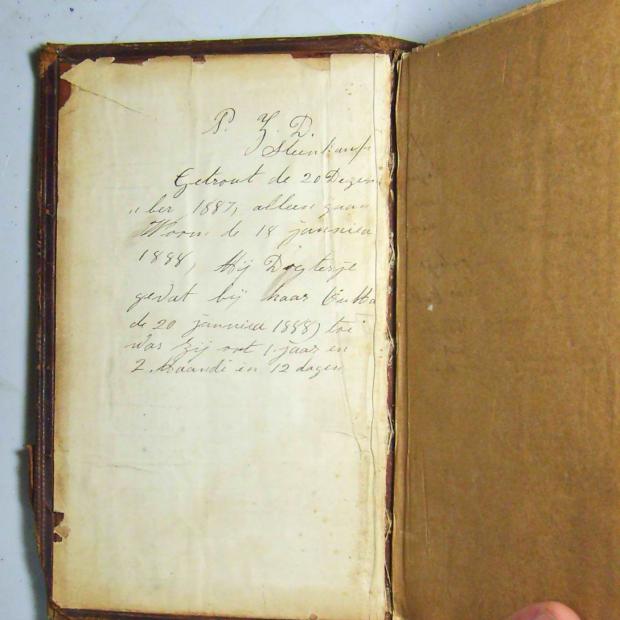 P. Z. D.
Steenkamp
Getrout de 20 Dezem
"ber 1887, alleen gaan
Woon de 18 januieu
1888, Mij Dogterje
gevat bij haar
de 20 januieu 1888) toe
was zij out 1 jaar en
2 Maande en 12 dagen